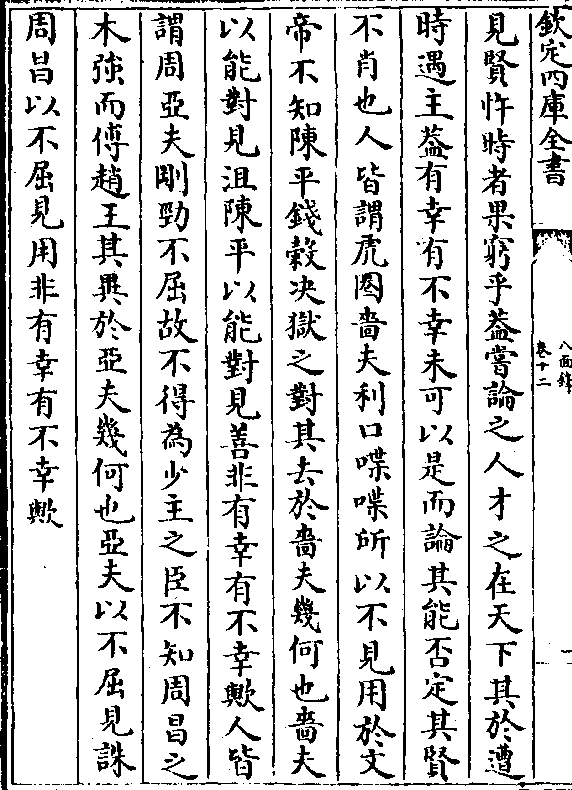 欽定四庫全書
八面鋒
卷十二
一
見賢忤時者果窮乎葢嘗論之人才之在天下其於遭
時遇主葢有幸有不幸未可以是而論其能否定其賢
不肖也人皆謂虎圈嗇夫利口喋喋所以不見用於文
帝不知陳平錢榖决獄之對其去於嗇夫幾何也嗇夫
以能對見沮陳平以能對見善非有幸有不幸歟人皆
謂周亞夫剛勁不屈故不得為少主之臣不知周昌之
木强而傅趙王其異於亞夫幾何也亞夫以不屈見誅
周昌以不屈見用非有幸有不幸歟